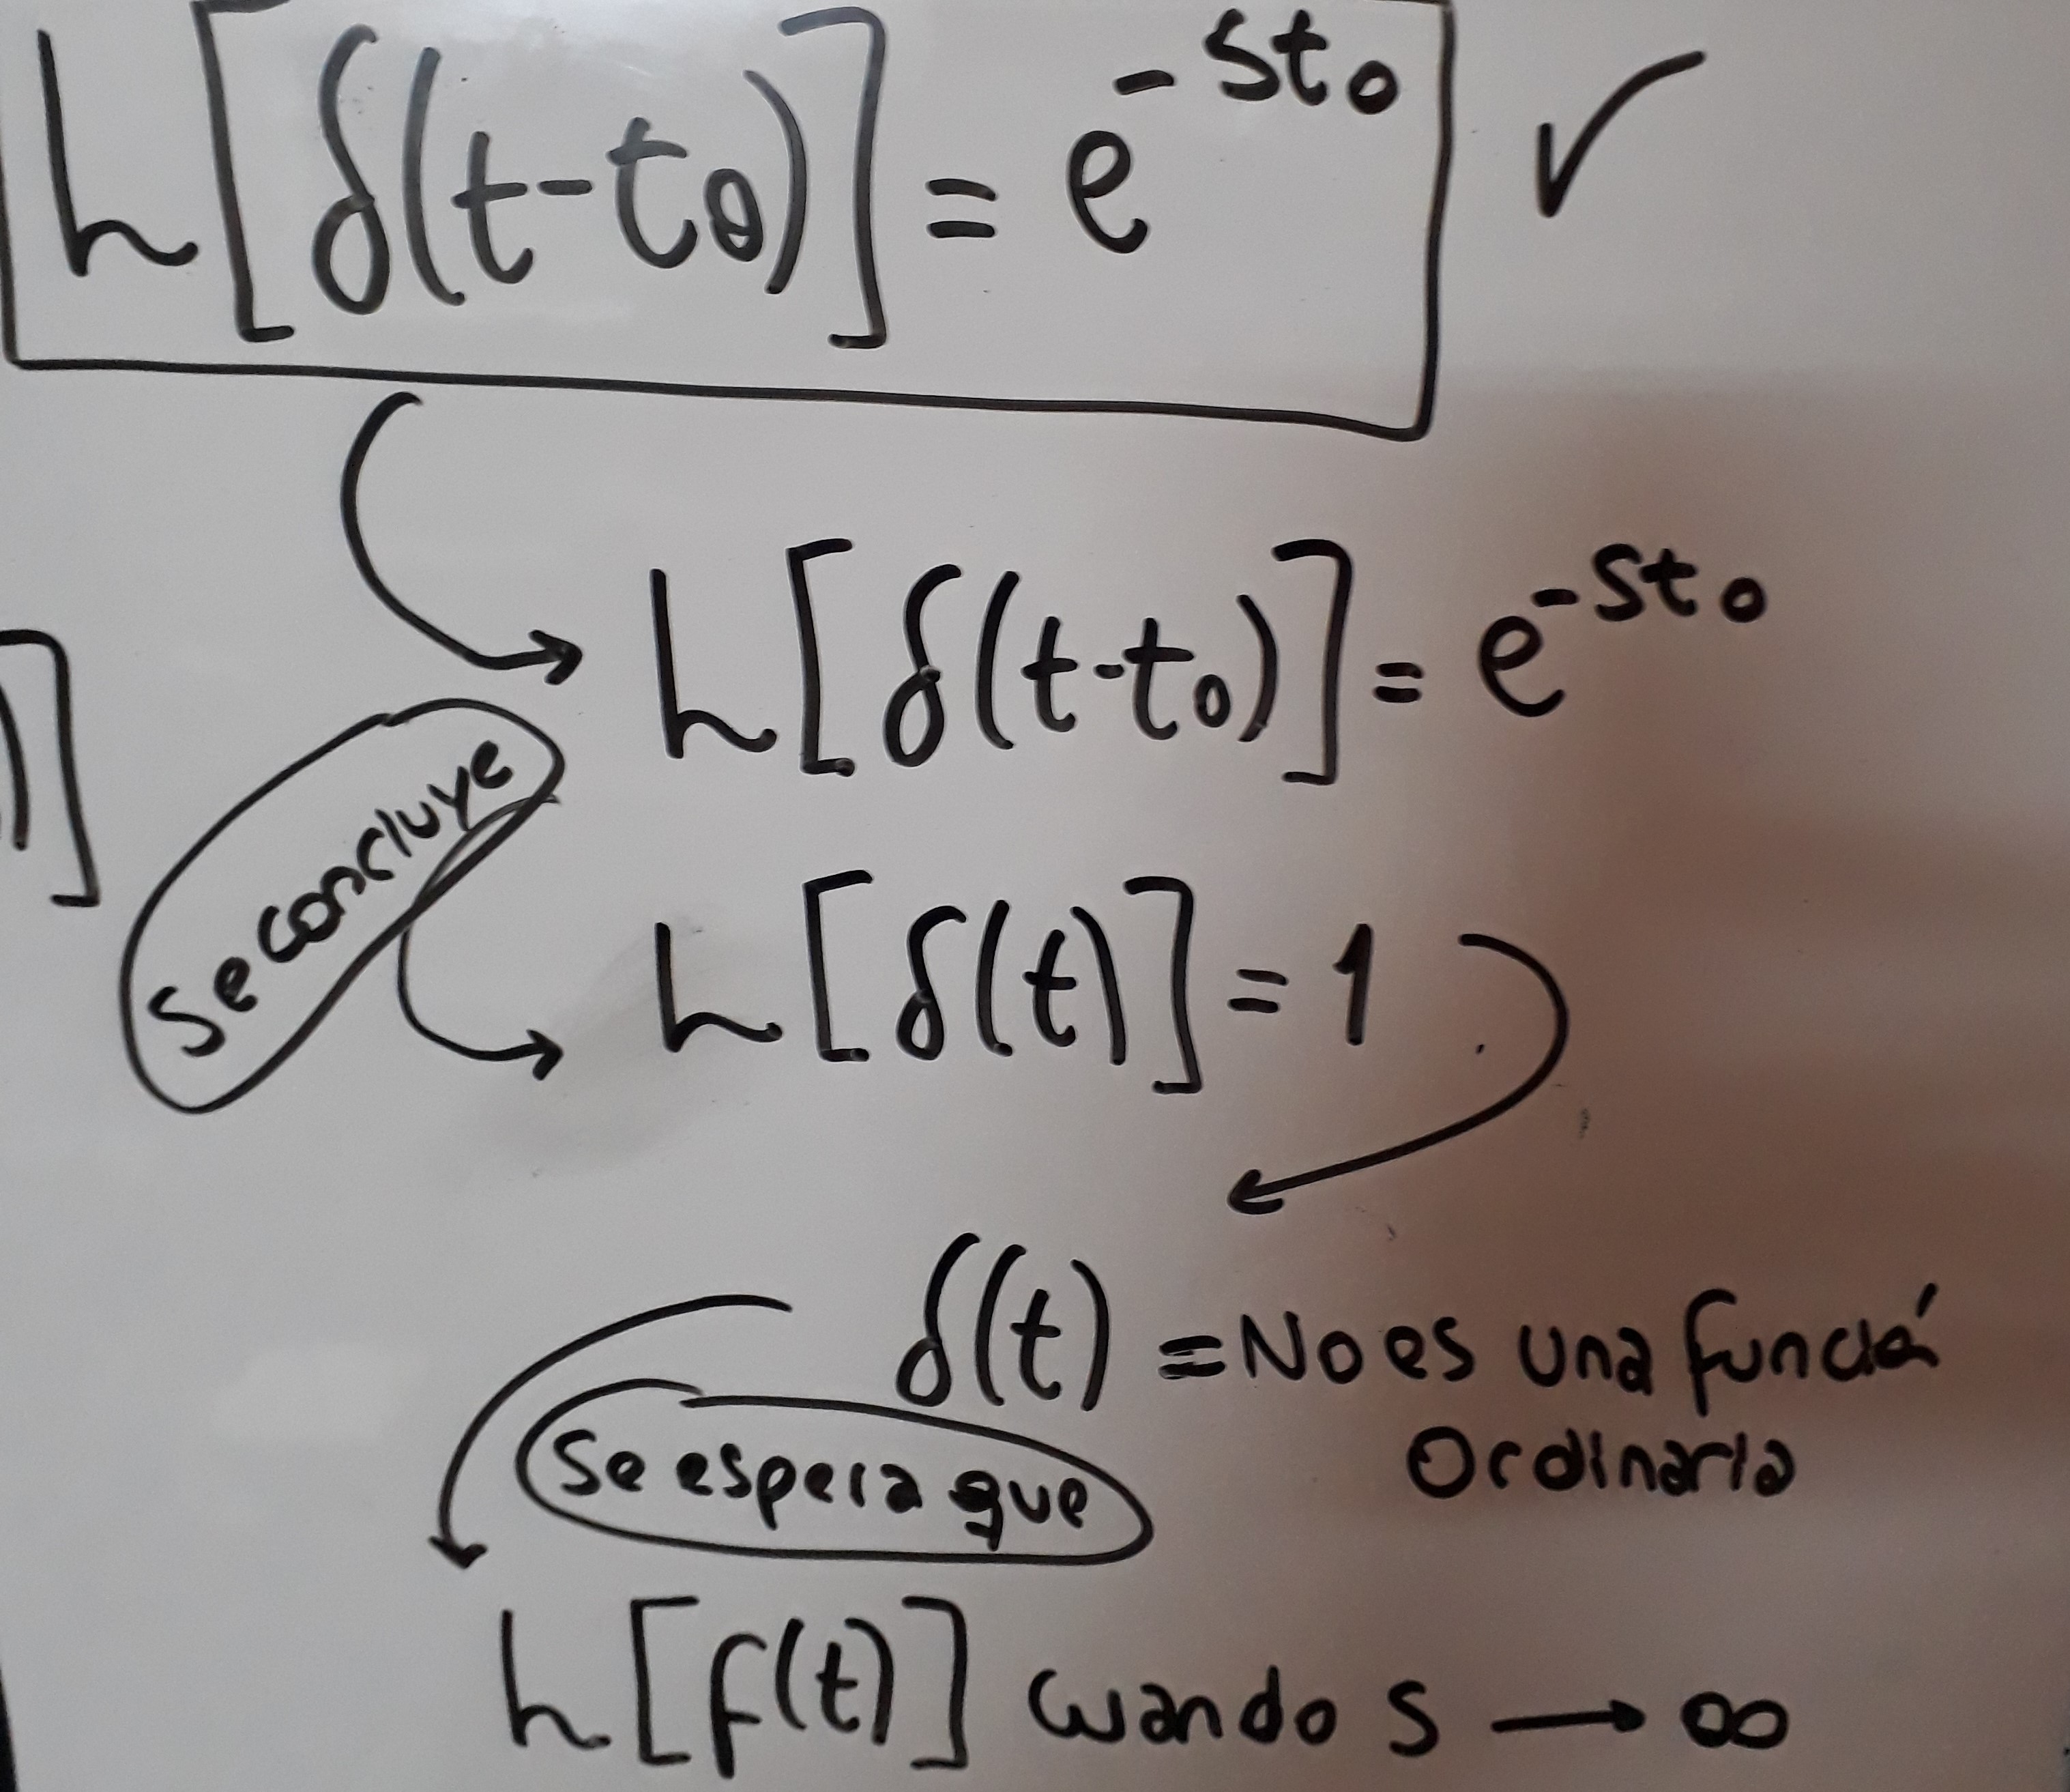 L[δ(t-t0)] = e^-st0 ✓
L[δ(t-t0)] = e^-st0
Se concluye
L[δ(t)] = 1
δ(t) = No es una función
Ordinaria
Se espera que
L[f(t)] cuando s → ∞